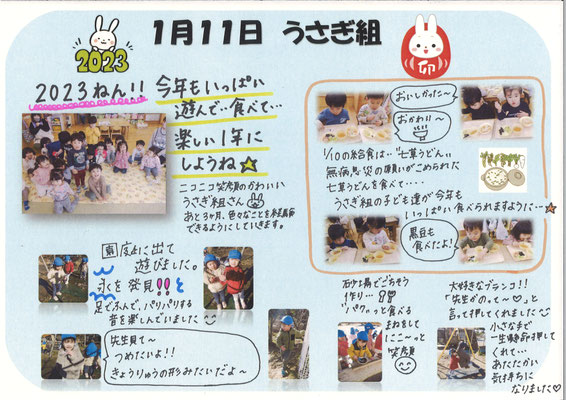 1月11日 うさぎ組
2023
卯
2023ねん!!
今年もいっぱい
遊んで…食べて…
楽しい1年に
しようね☆
ニコニコ笑顔のかわいい
うさぎ組さん
あと3ヶ月、色々なことを経験
できるようにしていきます。
おいしかった〜
おかわり〜
1/10の給食は…"七草うどん"
無病息災の願いがこめられた
七草うどんを食べて・・・・
うさぎ組の子ども達が今年も
いっぱい食べられますように…☆
黒豆も
食べたよ!
園庭に出て
遊びました。
氷を発見!!
足でふんで、パリパリする
音を楽しんでいました
先生見て〜
つめたいよ!!
きょうりゅうの形みたいだよ〜
砂場でごちそう
作り…
"パクっ"と食べる
まねをして
にこ〜っと
笑顔
大好きなブランコ!!
「先生がのって〜♡」と
言って押してくれました
小さな手で
一生懸命押して
くれて…
あたたかい
気持ちに
なりました♡